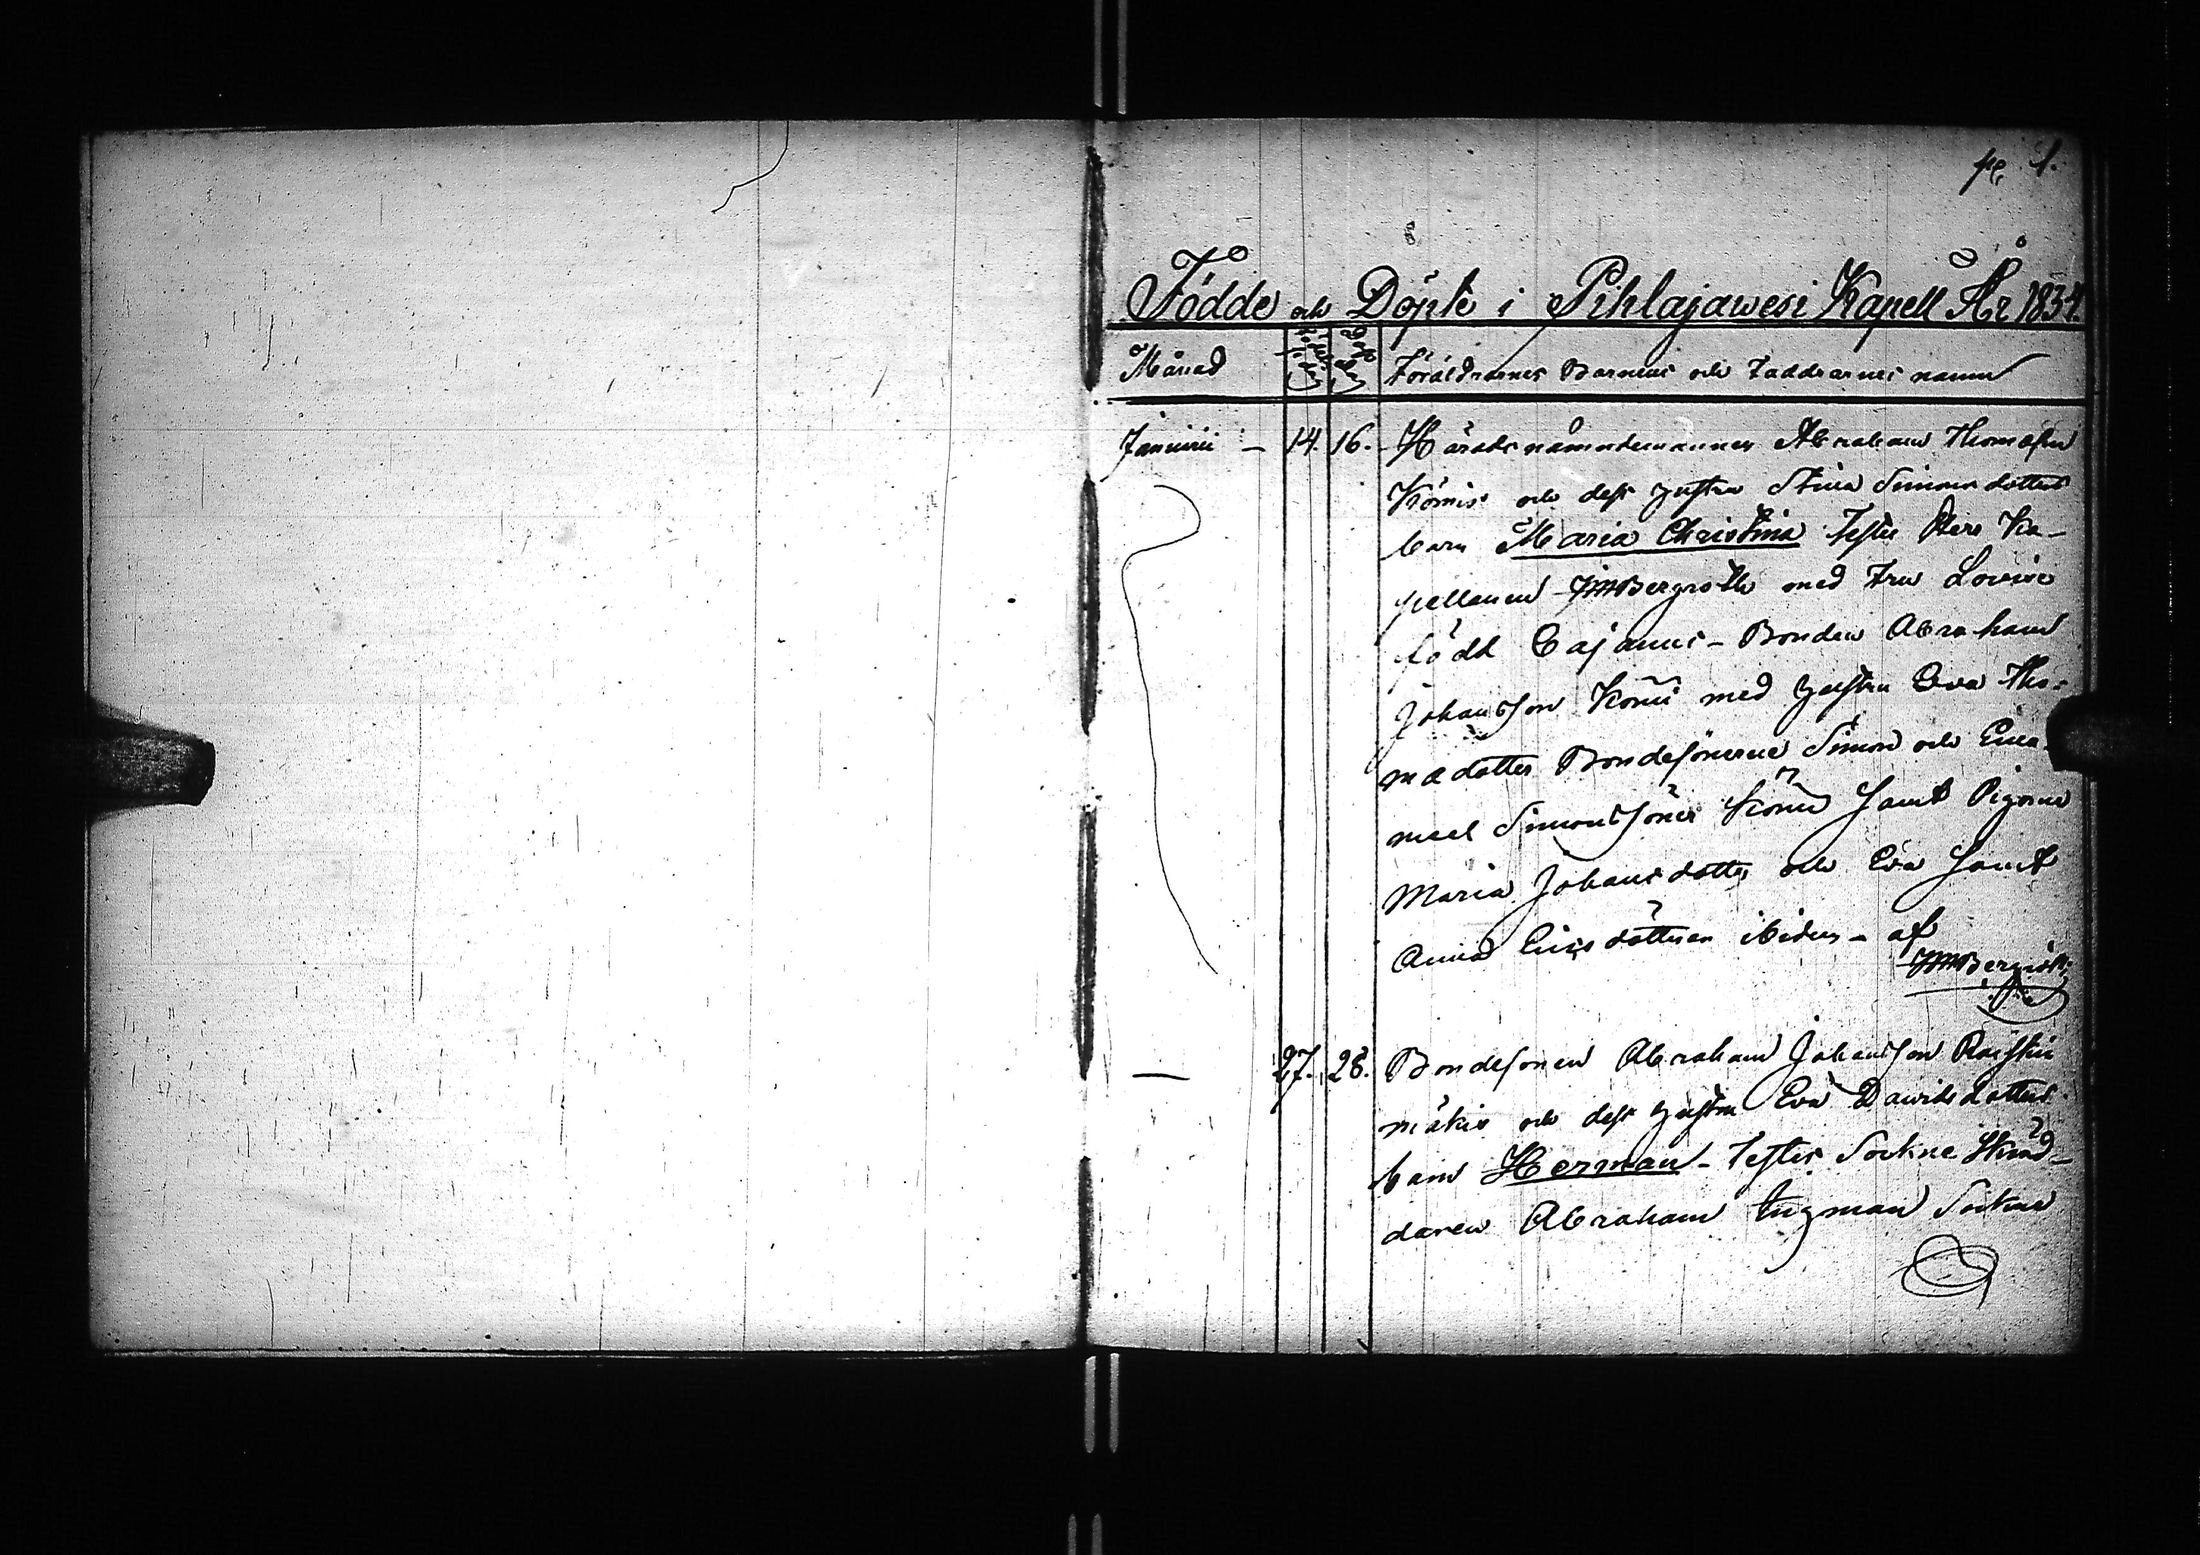 pg. 1.
Födde och Döpte i Pihlajawesi Kapell År 1834.
Månad
Föräldrarnes Barnens och Faddrarnes namn
Januarii – 14. 16. Häradsnämndemannen Abraham Thomasson
Könnis och dess hustru Stina Simonsdotters
barn Maria Christina Testes Herr Ka-
pellanen JMBergroth med Fru Lovisa
född Cajanus – Bonden Abraham
Johansson Könni med hustru Eva Tho-
mædotter Bondesönerne Simon och Ema-
nuel Simonssöner Könni samt Pigorne
Maria Johansdotter och Eva samt
Anna Ericsdöttrar ibidem – af
JMBergroth
— 27. 28. Bondesonen Abraham Johansson
mäkis och dess hustru Eva Davidsdotters
barn Herman – Testes Sockne Skräd-
daren Abraham Sockne